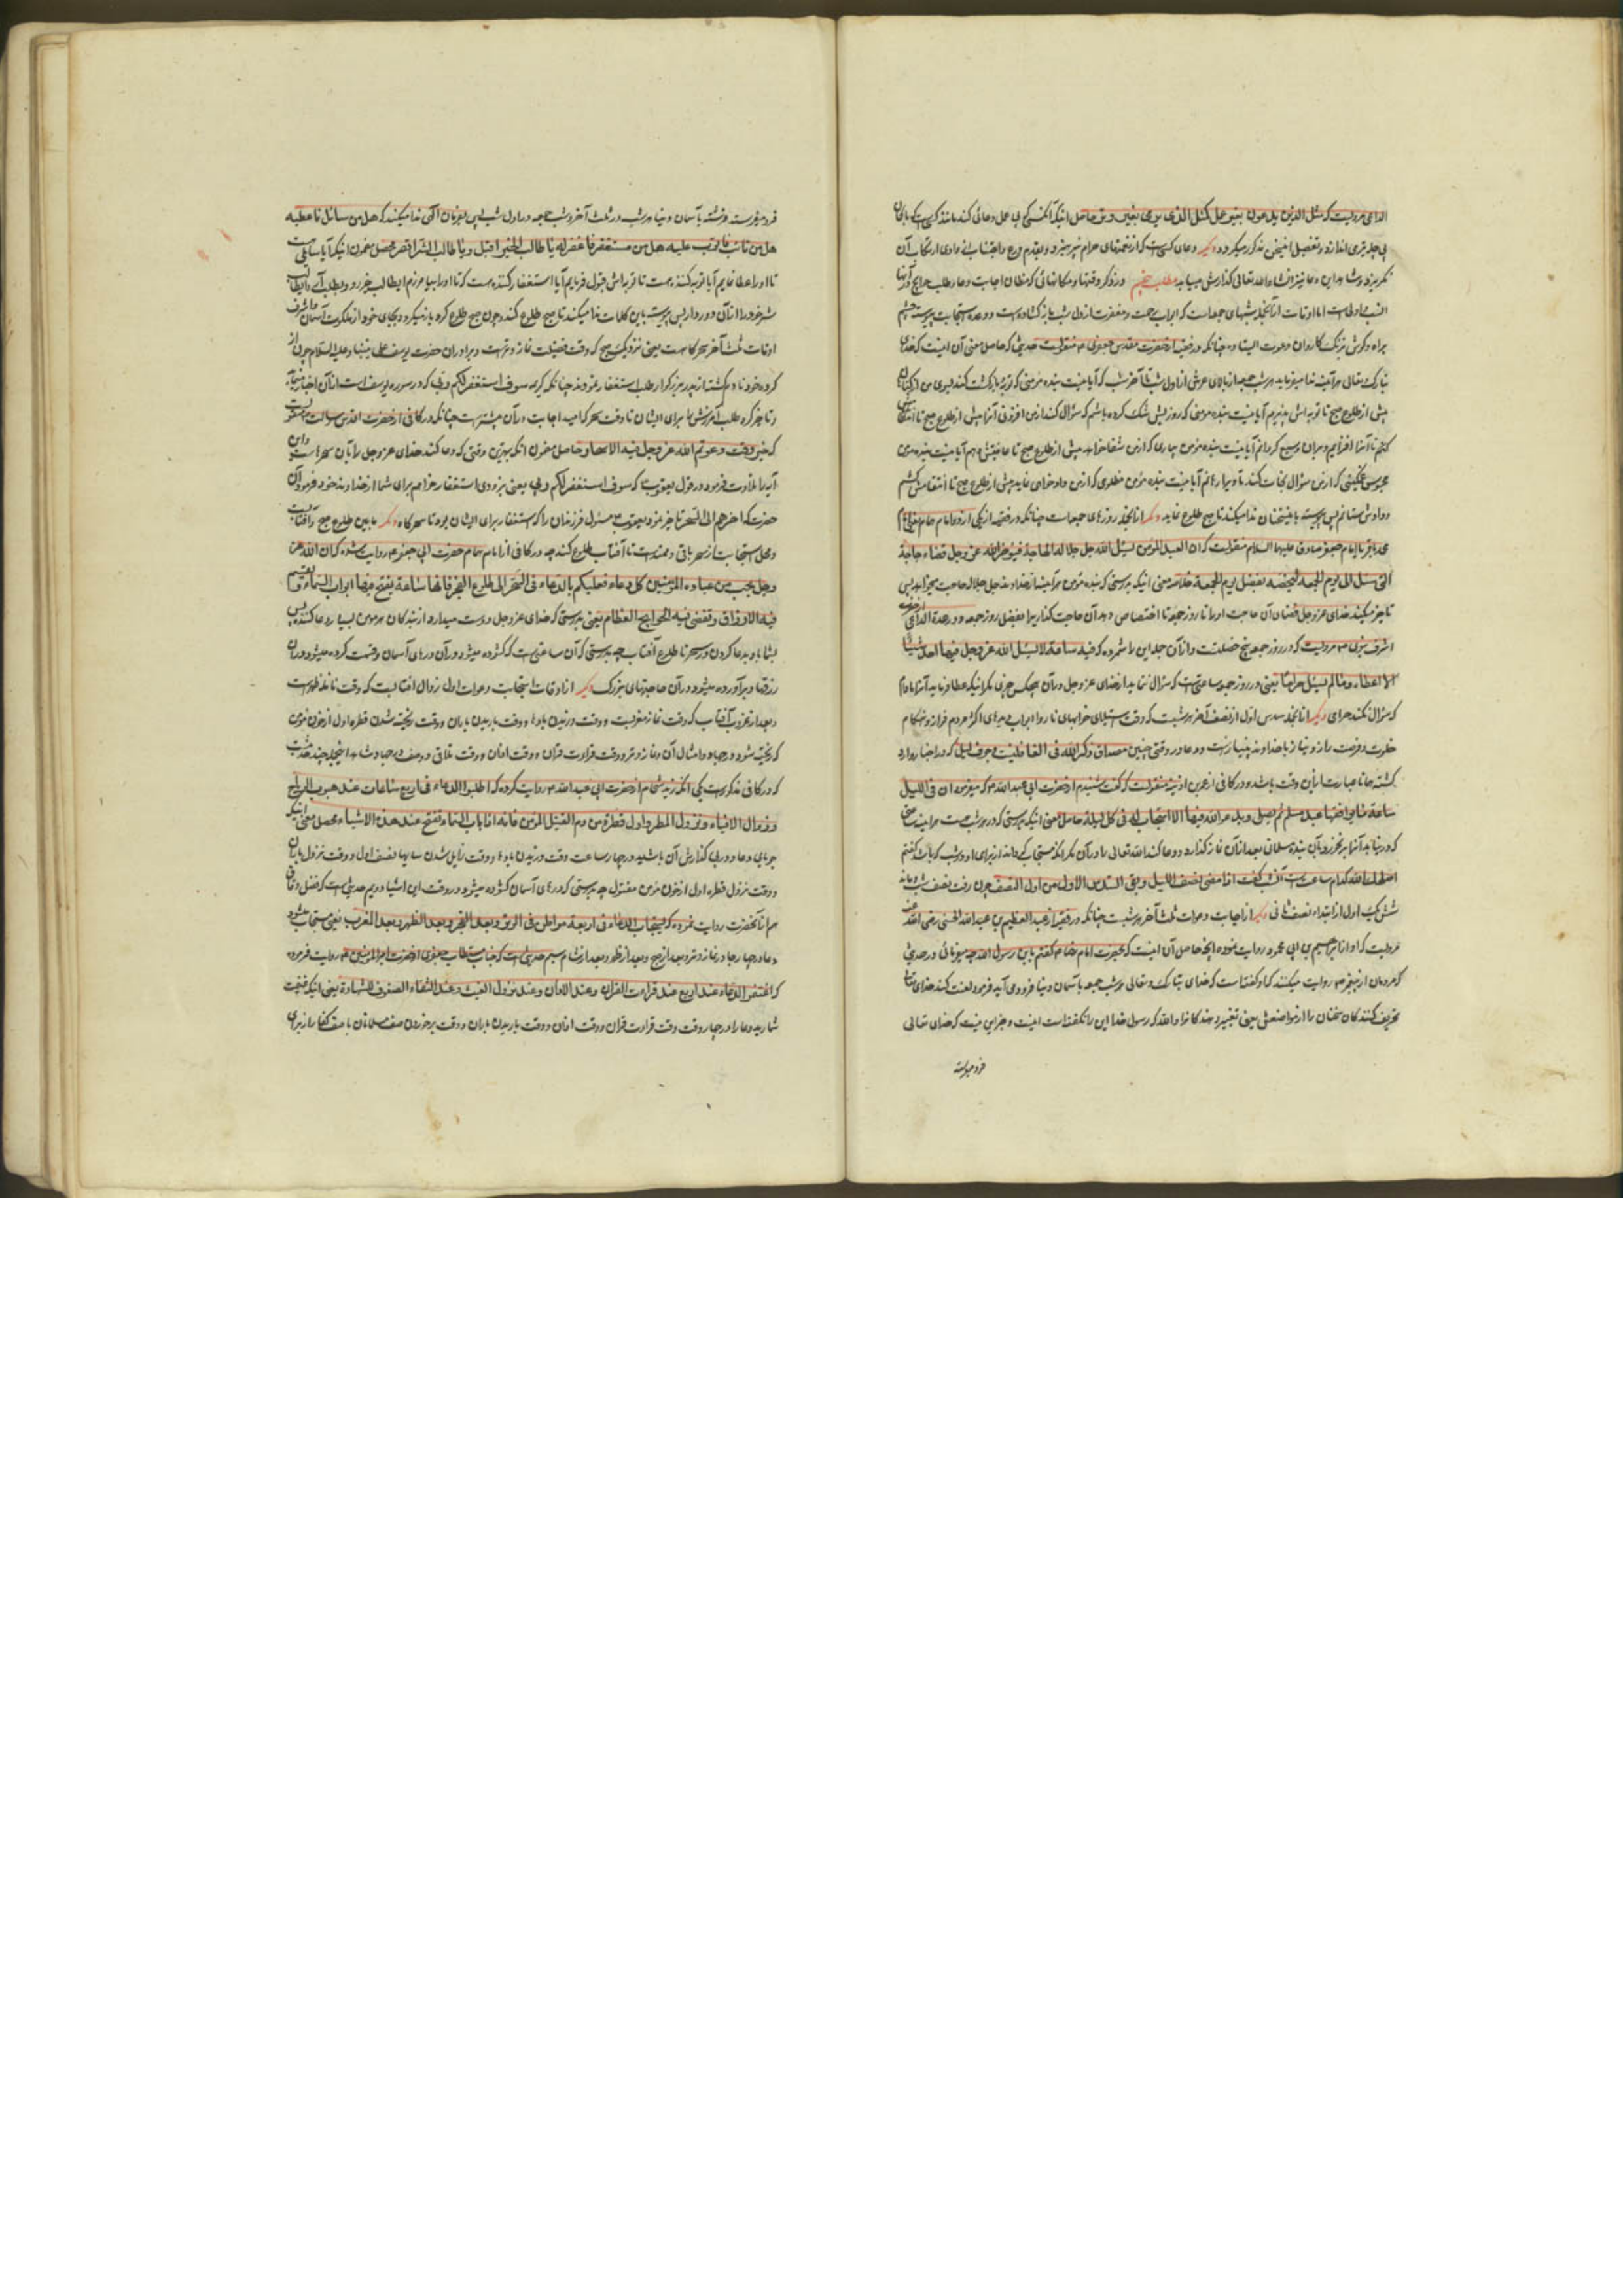 الداعی مرویست که مثل الذین یدعون بغیر عمل کمثل الذی یرمی بغیر وتر حاصل اینکه آنکسی که بی عمل دعائی کند مانند کسیست که با کمان
بی چله تیری اندازد و تفصیل این سخن مذکور میگردد دیگر دعای کسیست که از لقمهای حرام نپرهیزد و بقدم ورع و اجتناب از وادی ارتکاب آن
نگریزد و شاهد این مدعا نیز انشاء الله تعالی گذارش مییابد مطلب پنجم در ذکر وقتها و مکانهائی که مظان اجابت دعا و طلب حوایج در آنها
انسب و اولی است اما اوقات از آنجمله شبهای جمعه است که ابواب رحمت و مغفرت از اول شب باز گشاده است و وعده استجابت پیوسته چشم
براه و گوش بر زنگ کاروان دعوت ایستاده چنانکه در فقیه از حضرت مقدس جعفری ع منقولست حدیثی که حاصل معنی آن اینست که خدای
تبارک و تعالی هرآینه ندا میفرماید هر شب جمعه از بالای عرش از اول شب تا آخر شب که آیا نیست بنده مؤمنی که توبه و بازگشت کند بسوی من از گناهان
پیش از طلوع صبح تا توبه اش بپذیرم آیا نیست بنده مؤمنی که روزیش تنک کرده باشم که سؤال کند از من افزونی آنرا پیش از طلوع صبح تا
کنم تا آنرا افزایم و بر او وسیع گردانم آیا نیست بنده مؤمن بیماری که از من شفا خواهد پیش از طلوع صبح تا عافیتش دهم آیا نیست بنده مؤمن
محبوس غمگینی که از من سؤال نجات کند تا ویرا رهانم آیا نیست بنده مؤمن مظلومی که از من دادخواهی نماید پیش از طلوع صبح تا انتقامش بکشم
و دادش بستانم پس پیوسته باین سخنان ندا میکند تا صبح طلوع نماید دیگر از آنجمله روزهای جمعه است چنانکه در فقیه از یکی از دو امام همام
محمد باقر یا امام جعفر صادق علیهما السلام منقولست که ان العبد المؤمن لیسئل الله جل جلاله الحاجة فیؤخر الله عز و جل قضاء حاجة
التی سئل الی یوم الجمعة لیخصه بفضل یوم الجمعة خلاصه معنی اینکه بدرستی که بنده مؤمن هرآینه از خداوند جل جلاله حاجت میخواهد پس
تاخیر میکند خدای عز و جل قضای آن حاجت او را تا روز جمعه تا اختصاص دهد آن حاجت گذار ویرا بفضل روز جمعه و در عدة الداعی
اشرف نبوی ص مرویست که در روز جمعه پنج خصلتست و از آن جمله این را شمرده که فیه ساعة لا یسئل الله عز و جل فیها احد شیئا
الا اعطاه و ما لم یسئل حراما یعنی در روز جمعه ساعتی است که سؤال ننماید از خدای عز و جل در آن هیچکس چیزی مگر اینکه عطا فرماید آنرا مادام
که سؤال نکند حرامی دیگر از آنجمله سدس اول از نصف آخر هر شبست که وقت استیلای خوابهای ناروا ابواب دیدهای اکثر مردم فراز و هنگام
خلوت و فرصت راز و نیاز با خداوند بی نیاز است و دعا در وقتی چنین مصداق ذکر الله فی الغافلین و جوف لیل که در اخبار وارد
گشته همانا عبارت از این وقت باشد و در کافی از عمر بن اذینه منقولست که گفت شنیدم از حضرت ابی عبد الله ع که میفرمود ان فی اللیل
ساعة ما یوافقها عبد مسلم ثم یصلی و یدعو الله فیها الا استجاب له فی کل لیلة حاصل معنی اینکه بدرستی که در هر شب هست هرآینه ساعتی
که درنیابد آنرا بنده مسلمانی بعد از آن نماز گذارد و دعا کند الله تعالی را در آن مگر آنکه مستجاب گرداند از برای او در شب که باشد گفتم
اصلحک الله کدام ساعتست از شب گفت اذا مضی نصف اللیل و بقی السدس الاول من اول النصف چون رفت نصف شب و ماند
شش یک اول از ابتداء نصف ثانی دیگر از اجابت دعوات ثلث آخر هر شبست چنانکه در فقیه از عبد العظیم بن عبد الله الحسنی رضی الله عنه
مرویست که او از ابراهیم بن ابی محمود روایت نموده آنچه حاصل آن اینست که بحضرت امام رضا ع گفتم یا بن رسول الله چه میفرمائی در حدیثی
که مردمان از پیغمبر ص روایت میکنند که او گفته است که خدای تبارک و تعالی هر شب جمعه بآسمان دنیا فرود می آید فرمود لعنت کند خدای
تحریف کنندگان سخنان را از مواضعش یعنی تغییر دهندگانرا والله که رسول خدا این را نگفته است اینست و جز این نیست که خدای تعالی
فرو میفرستد
فرو میفرستد فرشته بآسمان دنیا هر شب در ثلث آخر و شب جمعه در اول شب پس بفرمان الهی ندا میکند که هل من سائل فاعطیه
هل من تائب فاتوب علیه هل من مستغفر فاغفر له یا طالب الخیر اقبل و یا طالب الشر اقصر محصل مضمون اینکه آیا سائلی هست
تا او را عطا نمایم آیا توبه کننده هست تا توبه اش قبول فرمایم آیا استغفار کننده هست که تا او را بیامرزم ای طالب خیر رو بمطلب آی و ای طالب
شر خود را از آن دور دار پس پیوسته باین کلمات ندا میکند تا صبح طلوع کند و چون صبح طلوع کرد باز میگردد بجای خود از ملکوت آسمان و اشرف
اوقات ثلث آخر سحرگاهست یعنی نزدیک صبح که وقت فضیلت نماز وتر است و برادران حضرت یوسف علی نبینا و علیه السلام چون از
کرده خود نادم گشته از پدر بزرگوار طلب استغفار نمودند چنانکه کریمه سوف استغفر لکم ربی که در سوره یوسف است از آن اخبار
و تاخیر کرد طلب آمرزش ها برای ایشان تا وقت سحر که امید اجابت در آن بیشتر است چنانکه در کافی از حضرت اقدس رسالت ص منقولست
که خیر وقت دعوتم الله عز و جل فیه الاسحار حاصل مضمون آنکه بهترین وقتی که دعا کنند خدای عز و جل را بآن سحرهاست و این
آیه را تلاوت فرمود در قول یعقوب ع که سوف استغفر لکم ربی یعنی بزودی استغفار خواهم برای شما از خداوند خود فرمود آن
حضرت که اخرهم الی السحر تاخیر فرمود یعقوب ع مسئول فرزندان را که استغفار برای ایشان بود تا سحرگاه دیگر ما بین طلوع صبح و آفتابست
و محل استجابت از سحر باقی و ممتد است تا آفتاب طلوع کند چه در کافی از امام همام حضرت ابی جعفر ع روایت شده که ان الله عز
و جل یحب من عباده المؤمنین کل دعاء فعلیکم بالدعاء فی السحر الی طلوع الفجر فانها ساعة یفتح فیها ابواب السماء و تقسم
فیه الارزاق و تقضی فیه الحوایج العظام یعنی بدرستی که خدای عز و جل دوست میدارد از بندگان مؤمن بسیار دعا کننده پس
بشما باد بدعا کردن در سحر تا طلوع آفتاب چه بدرستی که آن ساعتیست که گشوده میشود در آن درهای آسمان و قسمت کرده میشود در آن
رزقها و برآورده میشود در آن حاجتهای بزرگ دیگر از اوقات استجابت دعوات اول زوال آفتابست که وقت نافله ظهر است
و بعد از غروب آفتاب که وقت نماز مغربست و وقت وزیدن بادها و وقت باریدن باران و وقت ریخته شدن قطره اول از خون مؤمن
که ریخته شود در جهاد و امثال آن و نماز وتر و وقت قراءت قرآن و وقت اذان و وقت تلاقی دو صف در جهاد و شاهد اینجمله چند حدیث
که در کافی مذکور است یکی آنکه زید شحام از حضرت ابی عبد الله ع روایت کرده که اطلبوا الدعاء فی اربع ساعات عند هبوب الریاح
و زوال الافیاء و نزول المطر و اول قطرة من دم القتیل المؤمن فانه ابواب السماء تفتح عند هذه الاشیاء محصل معنی اینکه
جویای دعا و در پی گذارش آن باشید در چهار ساعت وقت وزیدن بادها و وقت زایل شدن سایها بنصف اول و وقت نزول باران
و وقت نزول قطره اول از خون مؤمن مقتول چه بدرستی که درهای آسمان گشوده میشود در وقت این اشیا دویم حدیثی است که فضل بقباق
هم از آنحضرت روایت نموده که یستجاب الدعاء فی اربعة مواطن فی الوتر و بعد الفجر و بعد الظهر و بعد المغرب یعنی مستجاب میشود
دعا در چهار جا در نماز وتر و بعد از صبح و بعد از ظهر و بعد از شام سیم حدیثی است که جناب مستطاب جعفری از حضرت امیر المؤمنین ع روایت فرموده
که اغتنموا الدعاء عند اربع عند قراءت القرآن و عند الاذان و عند نزول الغیث و عند التقاء الصفین للشهادة یعنی اینکه غنیمت
شمارید دعا را در چهار وقت وقت قراءت قرآن و وقت اذان و وقت باریدن باران و وقت برخوردن صف مسلمانان با صف کفار از برای